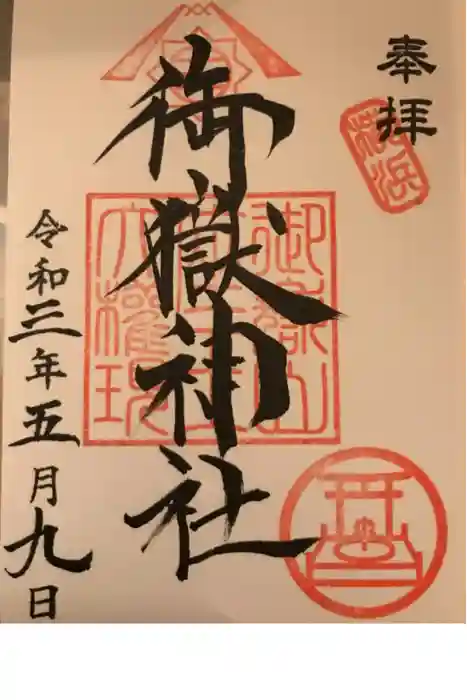 奉拝
横浜
御嶽神社
御嶽山
大権現
令和三年五月九日